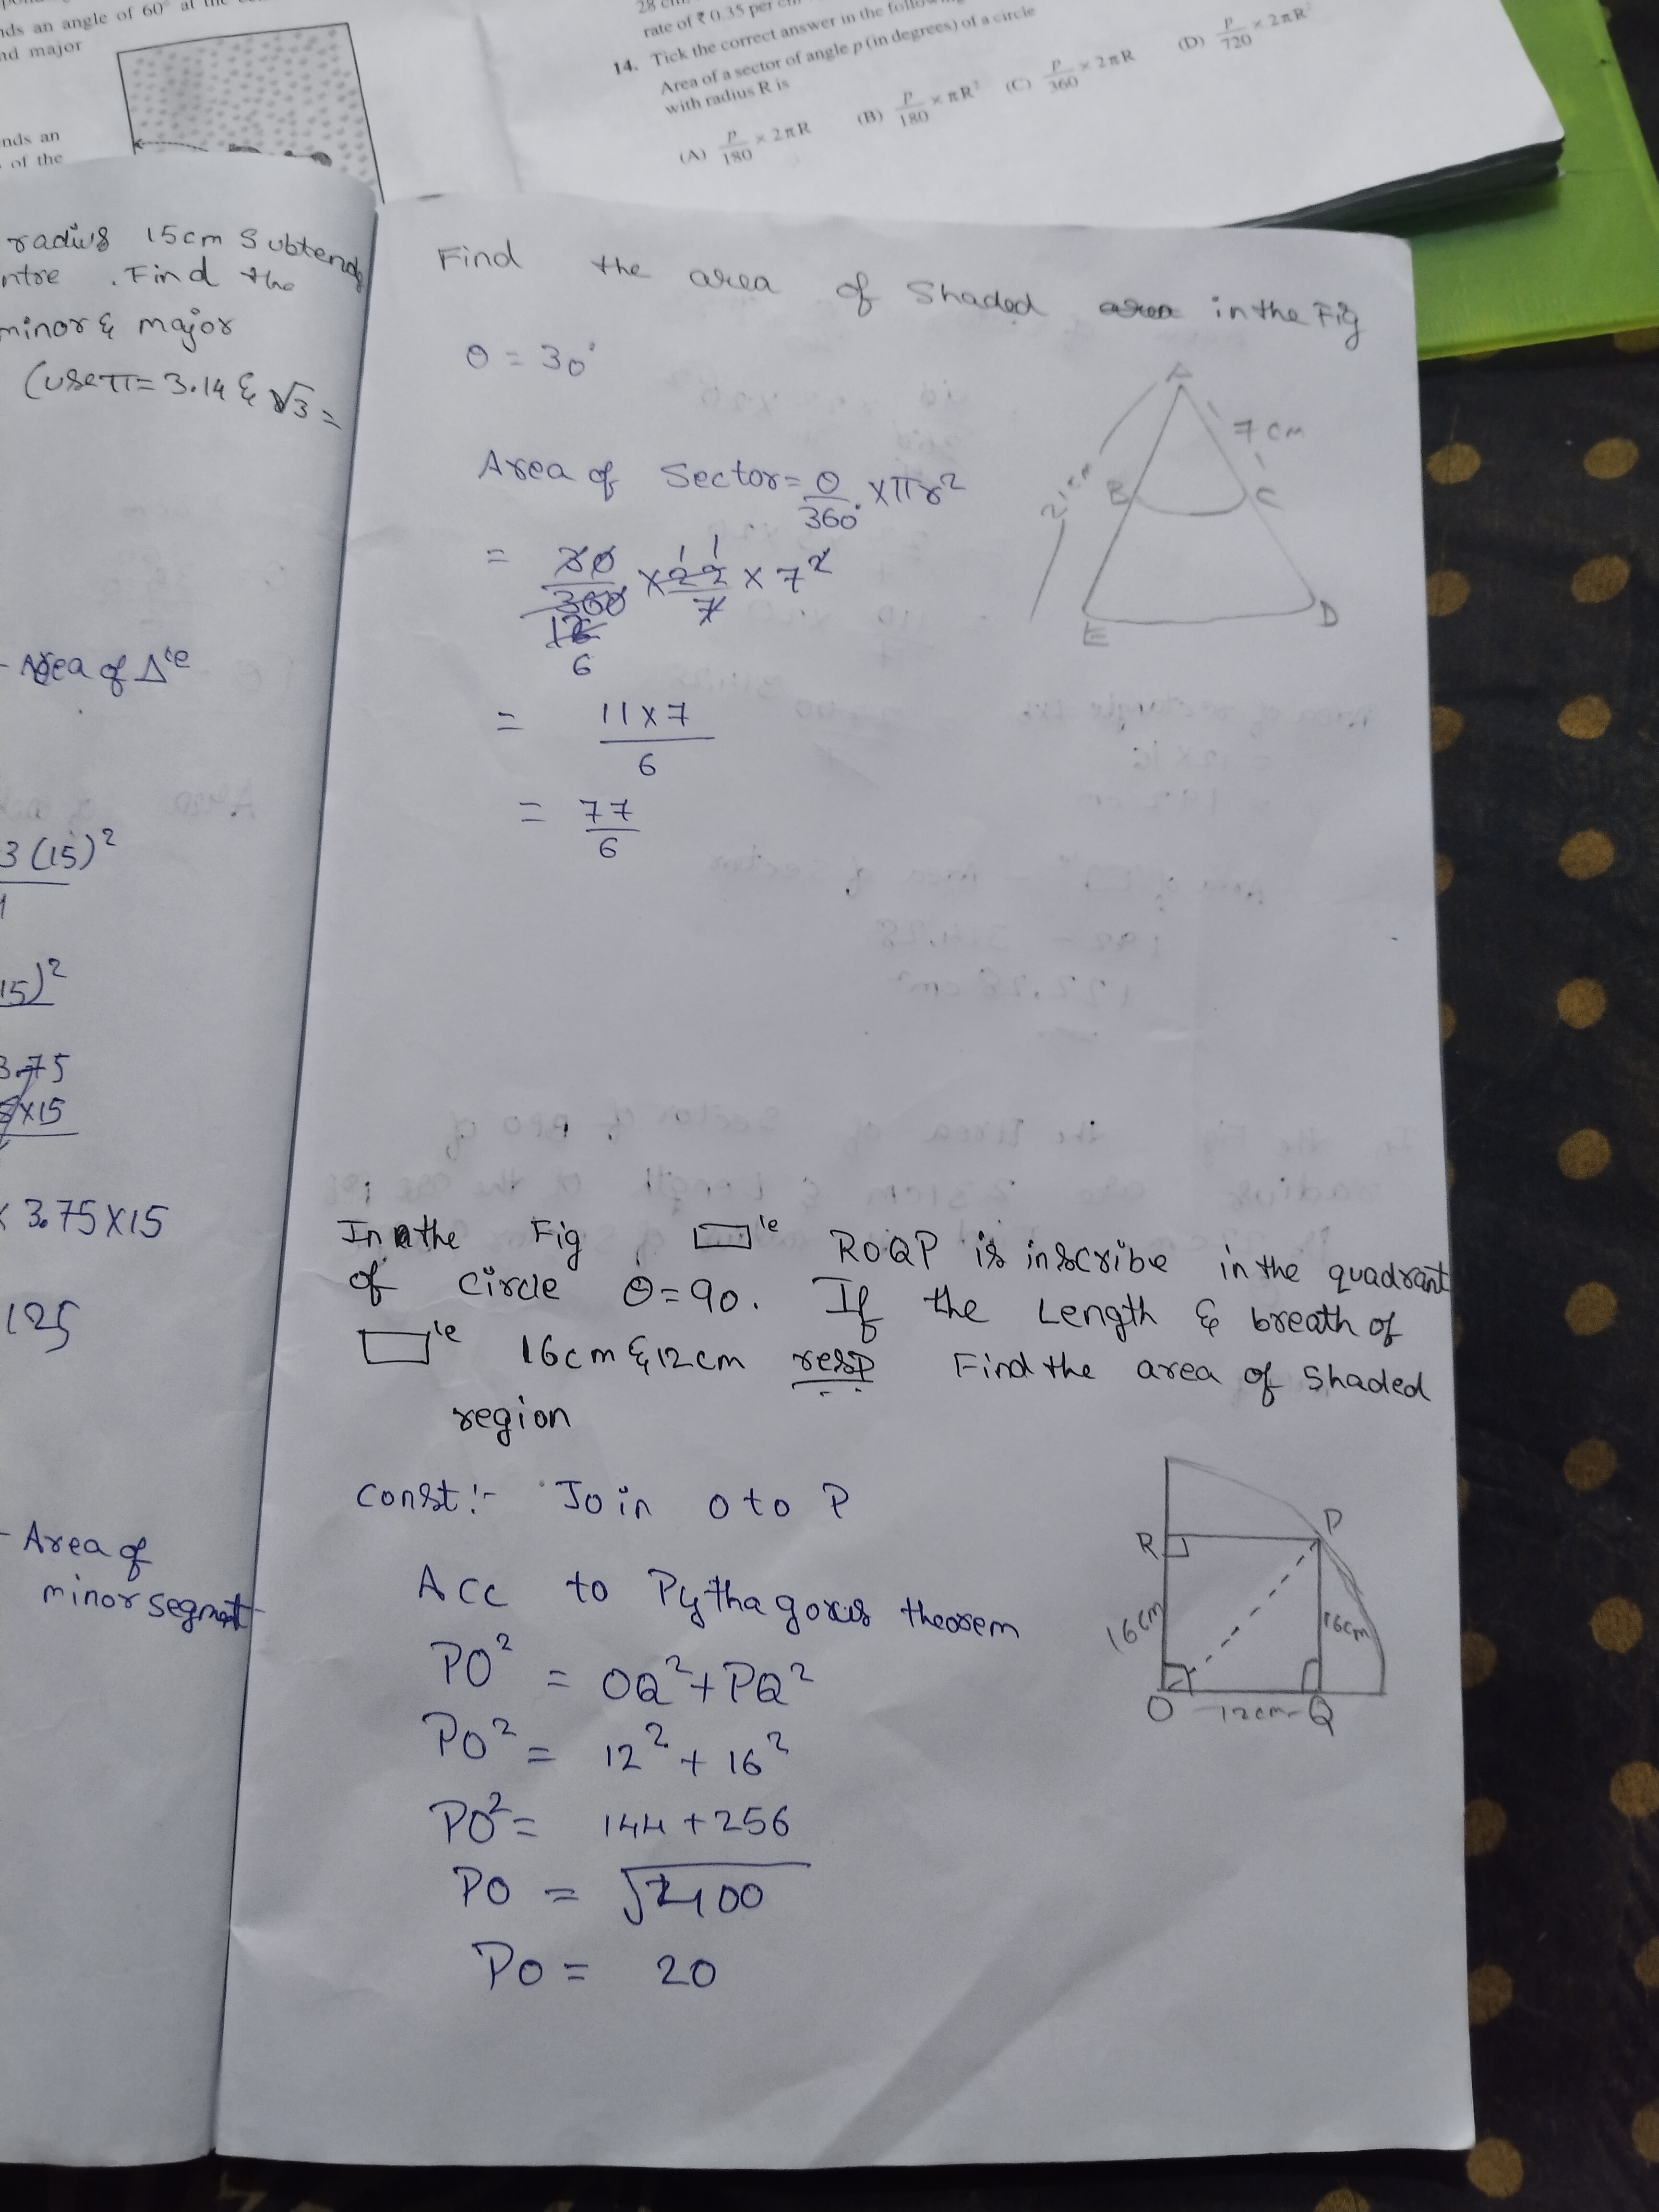 nds an angle of 60° at the
nd major
nds an
of the
28 cm
rate of ₹ 0.35 per
14. Tick the correct answer in the
Area of a sector of angle p (in degrees) of a circle
with radius R is
(A) p/180 × 2πR (B) p/180 × πR² (C) p/360 × 2πR (D) p/720 × 2πR²
radius 15cm Subtends
ntre . Find the
minor & major
(use π = 3.14 & √3 =
- Area of Δ'e
3 (15)²
15)²
3.75
×15
× 3.75×15
125
- Area of
minor segment
Find the area of Shaded in the Fig
θ = 30°
Area of Sector = θ/360° × πr²
= 30/360 × 22/7 × 7²
12
6
1 1
= 11×7/6
= 77/6
A
7 cm
21 cm
B
C
E
D
In the Fig ▭'e ROQP is inscribe in the quadrant
of circle θ = 90. If the Length & breath of
▭'e 16cm & 12cm resp Find the area of shaded
region
Const:- Join O to P
Acc to Pythagorus theorem
PO² = OQ² + PQ²
PO² = 12² + 16²
PO² = 144 + 256
PO = √400
PO = 20
P
R
16cm
16cm
O
12cm
Q